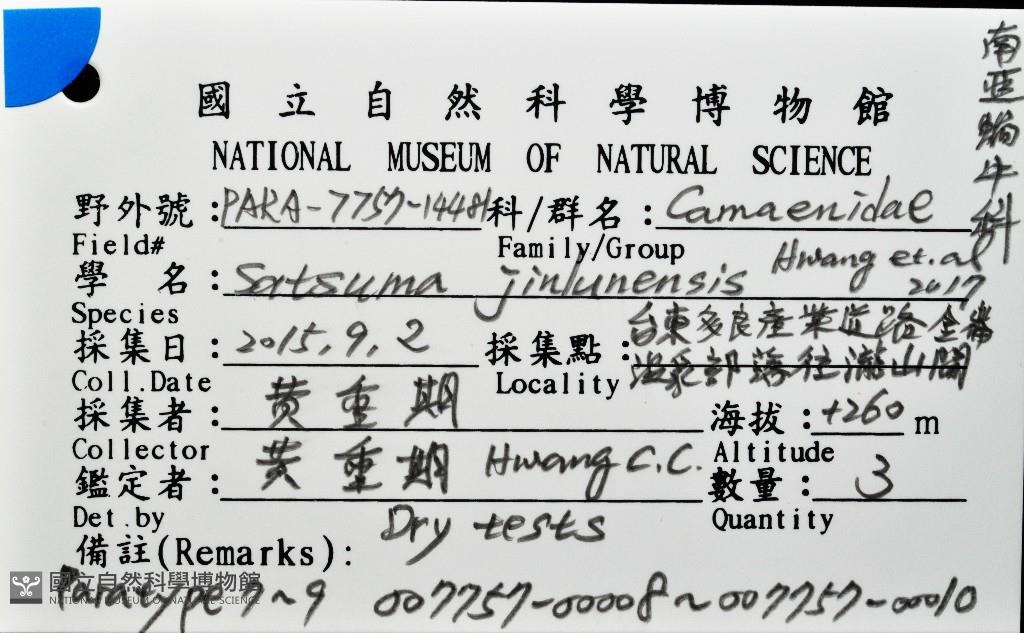 南亞蝸牛科
國立自然科學博物館
NATIONAL MUSEUM OF NATURAL SCIENCE
野外號:PARA-7757-14481 科/群名:Camaenidae
Field# Family/Group
學 名:Satsuma jinlunensis Hwang et.al 2017
Species
採集日:2015.9.2 採集點:台東多良產業道路金崙
溫泉部落往瀧山間
Coll.Date Locality
採集者:黃重期 海拔:+260 m
Collector Altitude
鑑定者:黃重期 Hwang C.C. 數量:3
Det.by Quantity
Dry tests
備註(Remarks):
國立自然科學博物館
NATIONAL MUSEUM OF NATURAL SCIENCE
Paratype 7~9 007757-00008~007757-00010